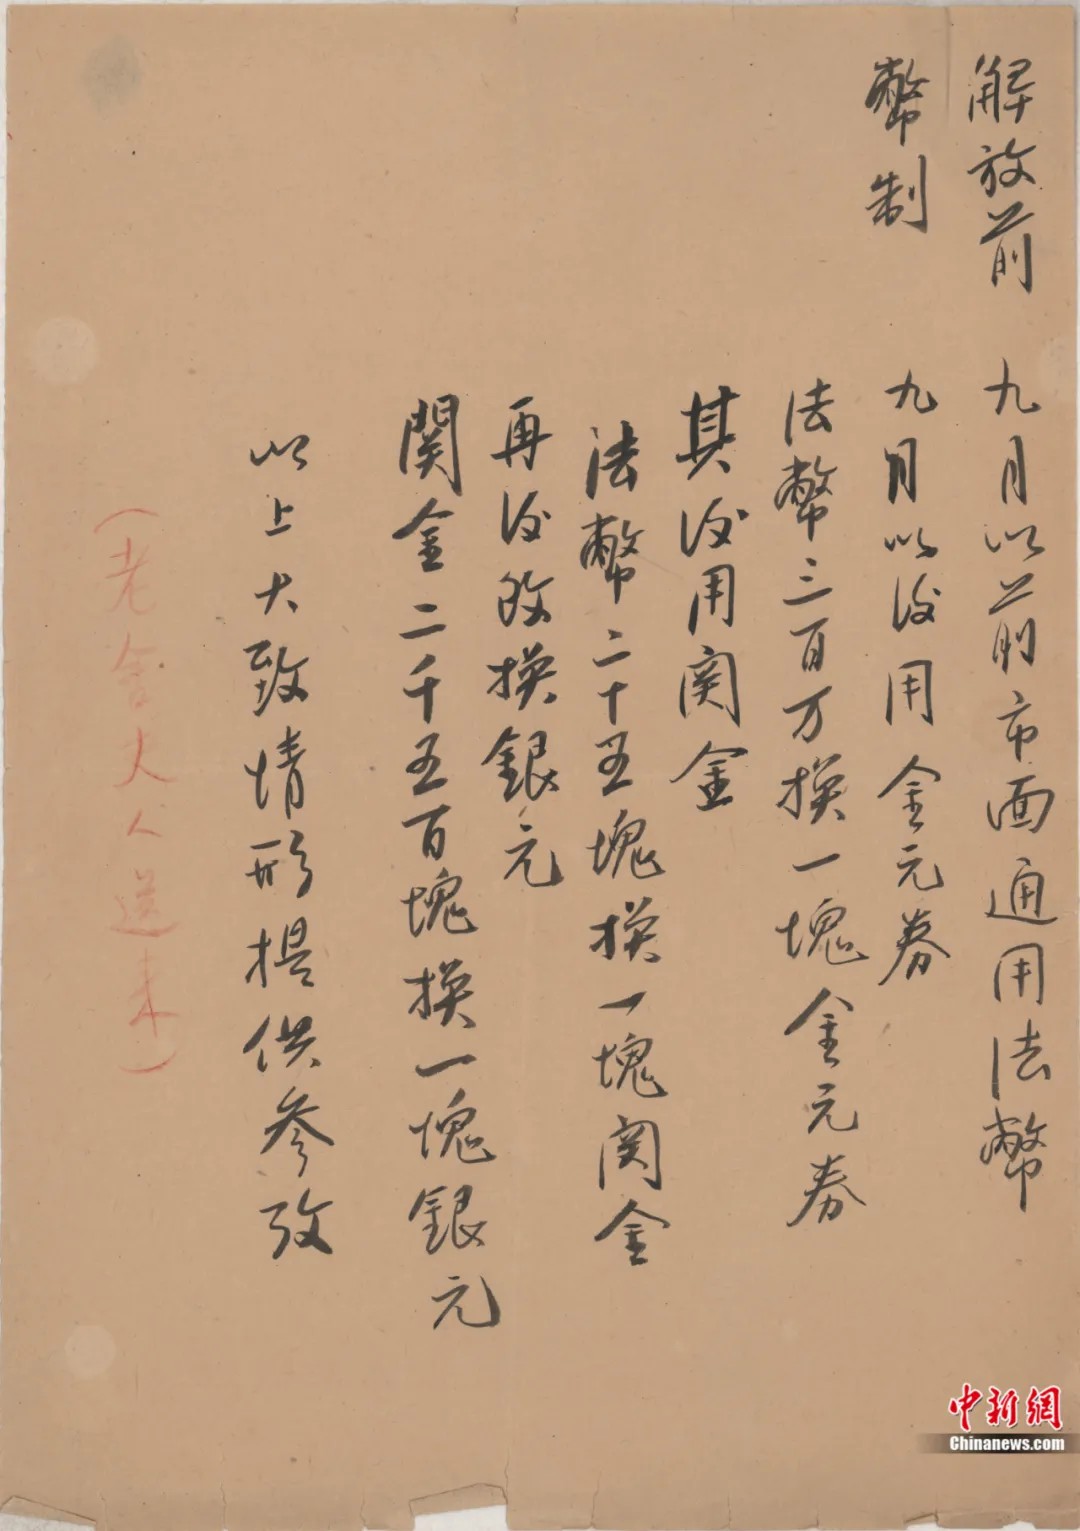 解放前 九月以前市面通用法幣
幣制 九月以後用金元券
法幣三百万換一塊金元券
其後用関金
法幣二十五塊換一塊関金
再後改換銀元
関金二千五百塊換一塊銀元
以上大致情形提供参攷
(老舍夫人送来)
中新網
Chinanews.com